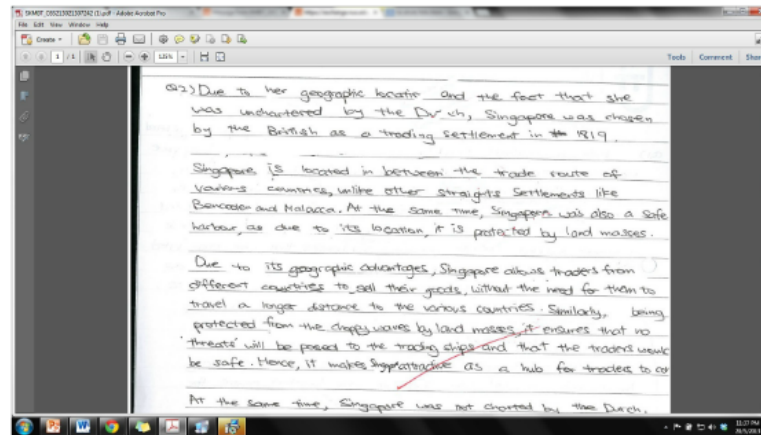 SKMBT_C65213021307242 (1).pdf - Adobe Acrobat Pro
File Edit View Window Help
Create
1 / 1
Tools Comment Share
Q2) Due to her geographic and the fact that she
was unchartered by the, Singapore was chosen
by the British as a trading settlement in 1819.
Singapore is located in between the trade route of
various countries, unlike other straights settlements like
and Malacca. At the same time, Singapore was also a safe
harbour, as due to its location, it is protected by land masses.
Due to its geographic advantages, Singapore allows traders from
different countries to sell their goods, without the need for them to
travel a longer distance to the various countries. Similarly, being
protected from the choppy waves by land masses, it ensures that no
threats will be posed to the trading ships and that the traders would
be safe. Hence, it makes attractive as a hub for traders to
At the same time, Singapore was not charted by the Dutch.
11:37 PM